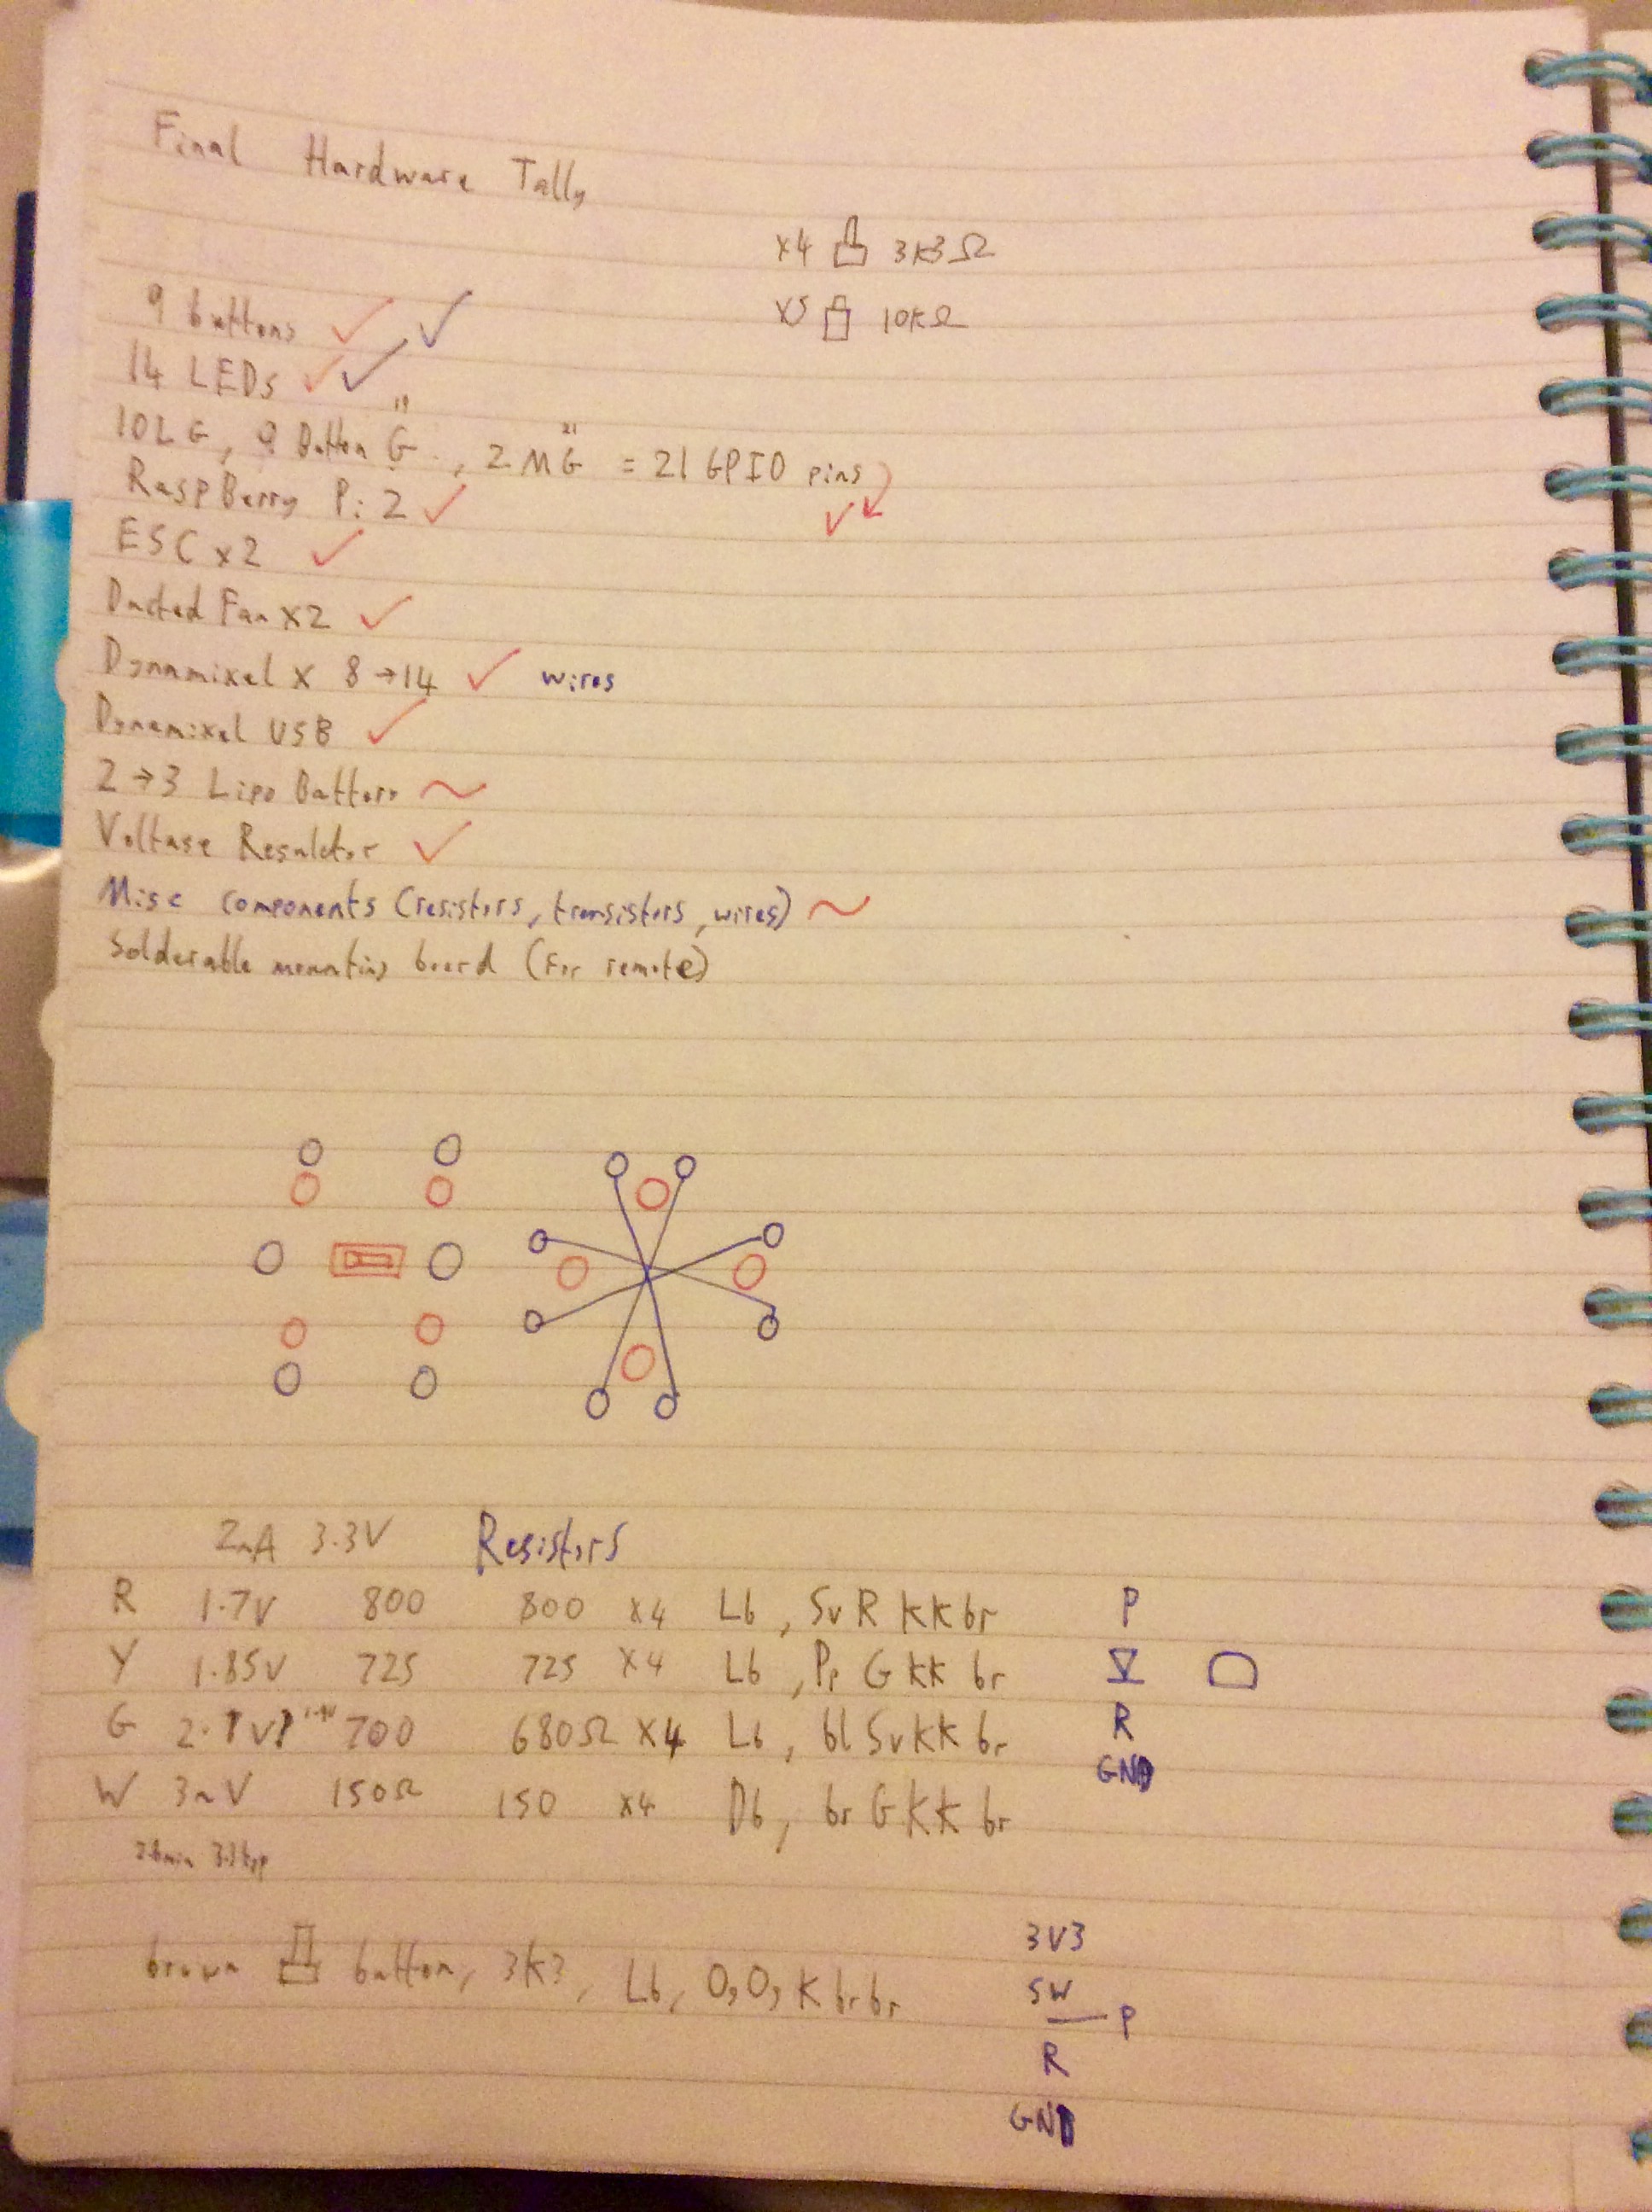 Final Hardware Tally
x4 3k3Ω
x5 10kΩ
9 buttons
14 LEDs
19 21
10LG, 9 Button G, 2 MG = 21 GPIO pins
RaspBerry Pi 2
ESC x2
Ducted Fan x2
Dynamixel x 8→14 wires
Dynamixel USB
2→3 Lipo Battery
Voltage Regulator
Misc components (resistors, transistors, wires)
Solderable mounting board (for remote)
2mA 3.3V Resistors
R 1.7v 800 800 x4 Lb, Sv R K K br P
Y 1.85v 725 725 x4 Lb, Pr G K K br
G 700 680Ω x4 Lb, bl Sv K K br R
GND
W 3 V 150Ω 150 x4 Db, br G K K br
brown button, 3k3, Lb, O, O, K br br
3V3
SW
P
R
GND